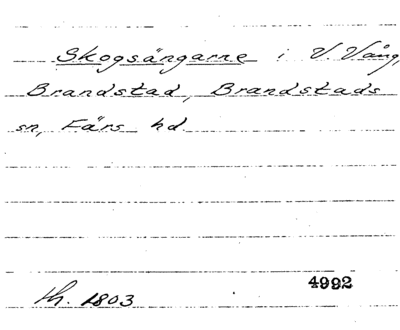 Skogsängarne i V. Vång,
Brandstad, Brandstads
sn, Färs hd
4992
lh. 1803